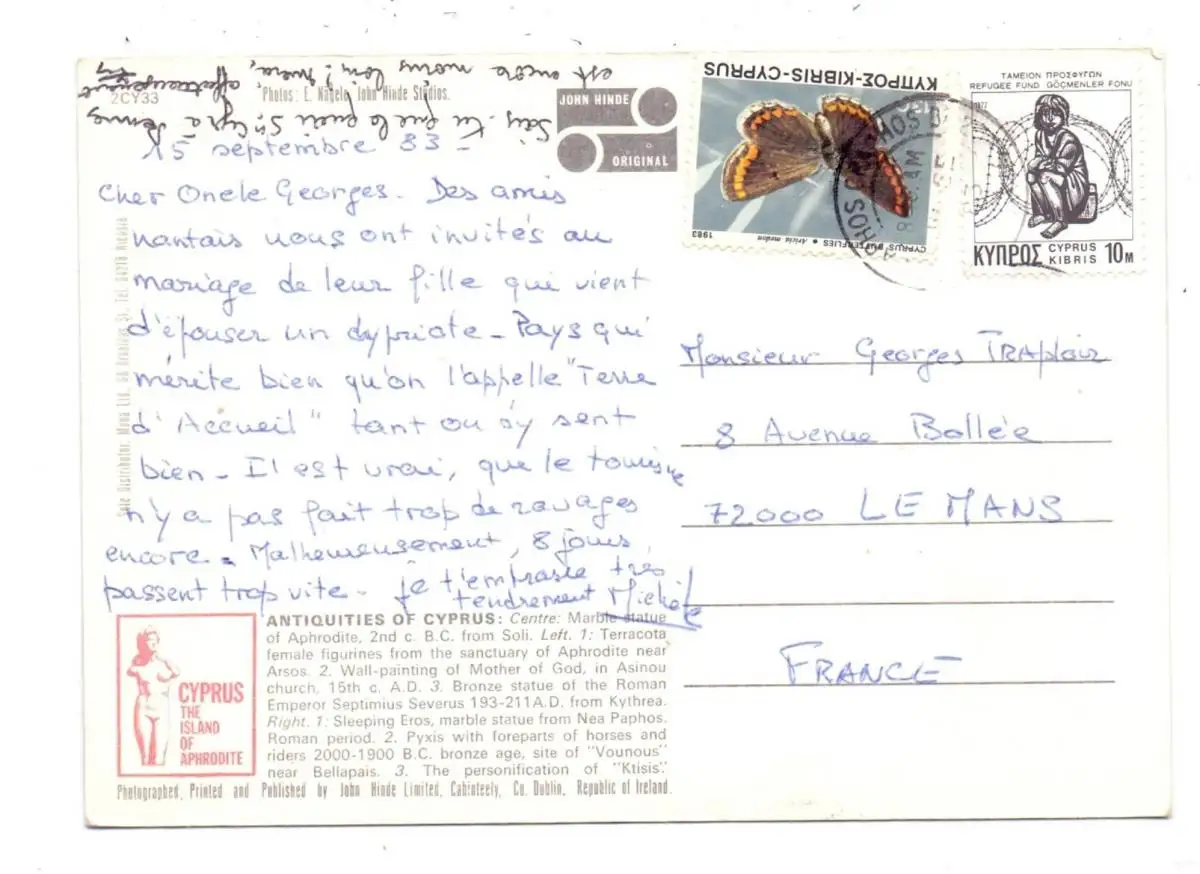 Sais-tu que le quai St Cyr à Rennes
est encore moins loin !
2CY33
Photos: E. Nägele, John Hinde Studios.
JOHN HINDE
ORIGINAL
15 septembre 83 -
Cher Oncle Georges. Des amis
nantais nous ont invités au
mariage de leur fille qui vient
d'épouser un cypriote - Pays qui
mérite bien qu'on l'appelle "Terre
d'Accueil" tant on s'y sent
bien - Il est vrai, que le tourisme
n'y a pas fait trop de ravages
encore. Malheureusement, 8 jours,
passent trop vite - Je t'embrasse très
tendrement Michèle
Sole Distributor: Tel.
ΚΥΠΡΟΣ-KIBRIS-CYPRUS
CYPRUS BUTTERFLIES • Aricia medon
1983
ΤΑΜΕΙΟΝ ΠΡΟΣΦΥΓΩΝ
REFUGEE FUND GÖÇMENLER FONU
1977
ΚΥΠΡΟΣ CYPRUS KIBRIS 10M
Monsieur Georges TRAPlair
8 Avenue Bollée
72000 LE MANS
FRANCE
CYPRUS
THE
ISLAND
OF
APHRODITE
ANTIQUITIES OF CYPRUS: Centre: Marble statue
of Aphrodite, 2nd c. B.C. from Soli. Left. 1: Terracota
female figurines from the sanctuary of Aphrodite near
Arsos. 2. Wall-painting of Mother of God, in Asinou
church, 15th c. A.D. 3. Bronze statue of the Roman
Emperor Septimius Severus 193-211 A.D. from Kythrea.
Right. 1: Sleeping Eros, marble statue from Nea Paphos.
Roman period. 2. Pyxis with foreparts of horses and
riders 2000-1900 B.C. bronze age, site of "Vounous"
near Bellapais. 3. The personification of "Ktisis".
Photographed, Printed and Published by John Hinde Limited, Cabinteely, Co. Dublin, Republic of Ireland.